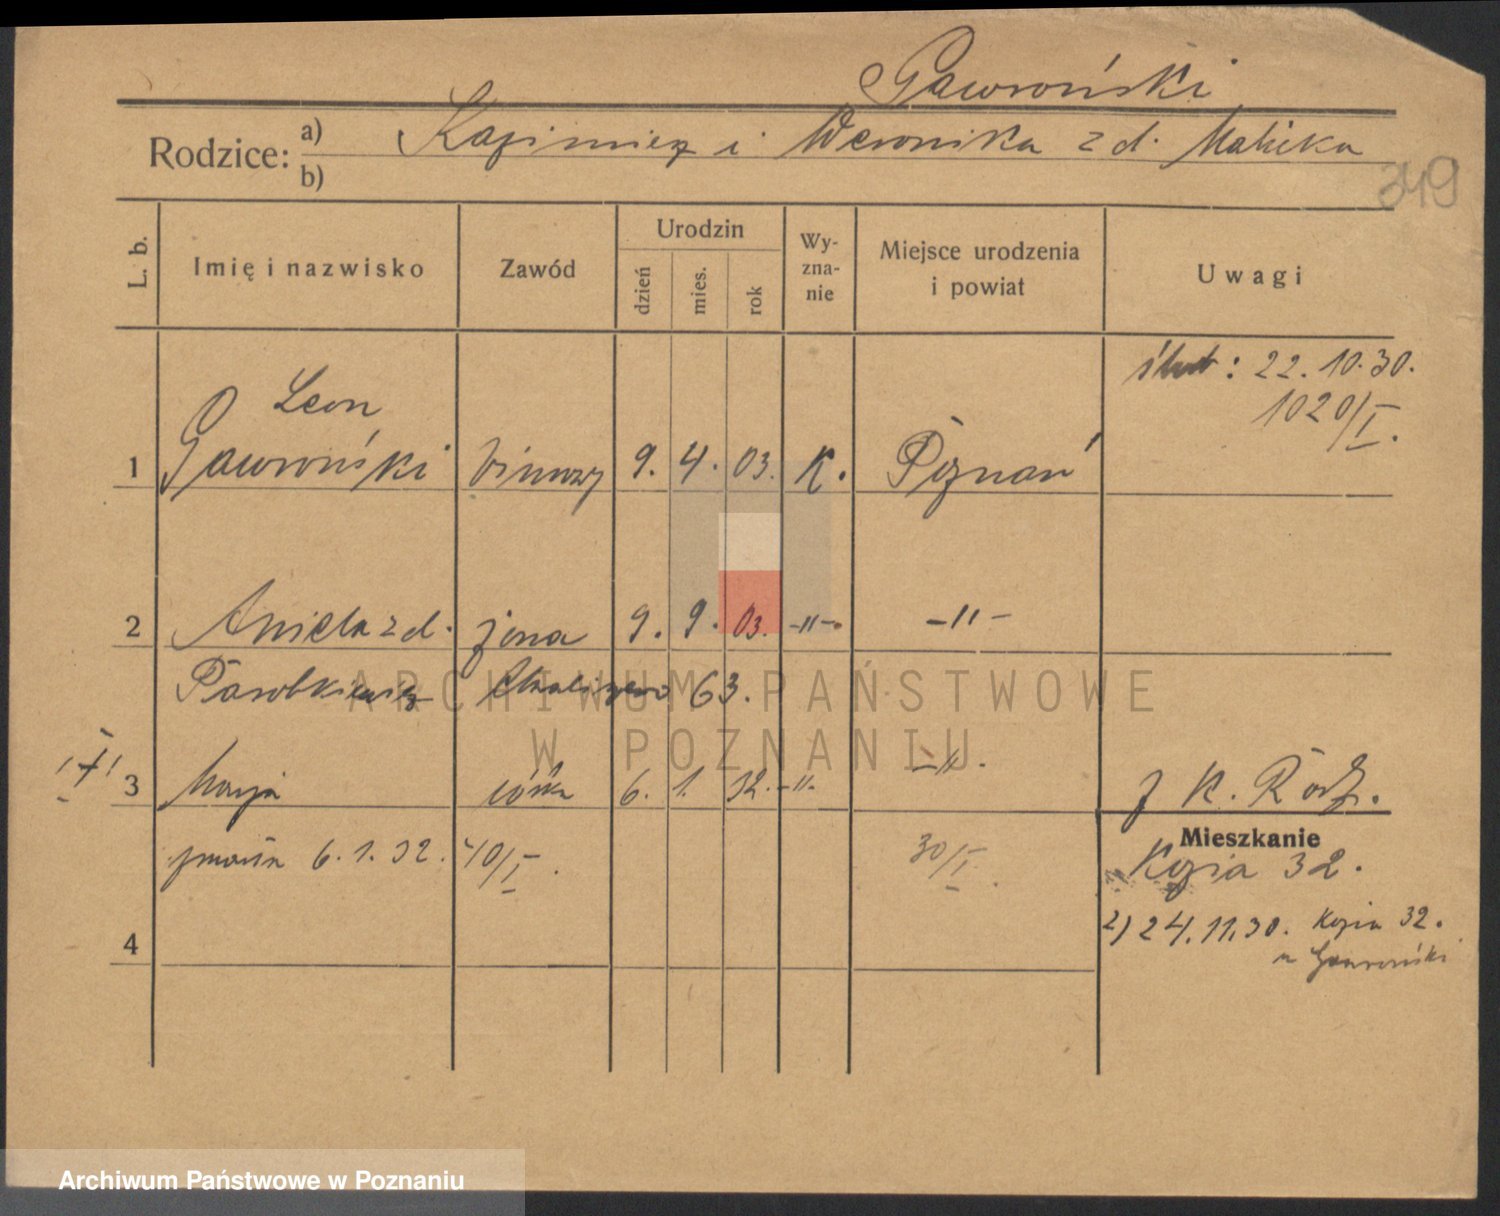 Gawroński
Rodzice: a) Kazimierz i Weronika z d. Malicka
b)
349
L. b. Imię i nazwisko Zawód Urodzin dzień mies. rok Wyznanie Miejsce urodzenia i powiat Uwagi
ślub: 22. 10. 30.
1020/I.
Leon
1 Gawroński 9. 4. 03. K. Poznań
2 Aniela z d. żona 9. 9. 03. -"-. -"-
Parobkiewicz 63.
ARCHIWUM PAŃSTWOWE
W POZNANIU
3 Marja córka 6. 1. 32. -"-. -"-.
z K. Rodz.
Mieszkanie
zmarła 6. 1. 32. 40/I. 30/I.
Kozia 32.
4
2) 24. 11. 30. Kozia 32.
u Gawroński
Archiwum Państwowe w Poznaniu